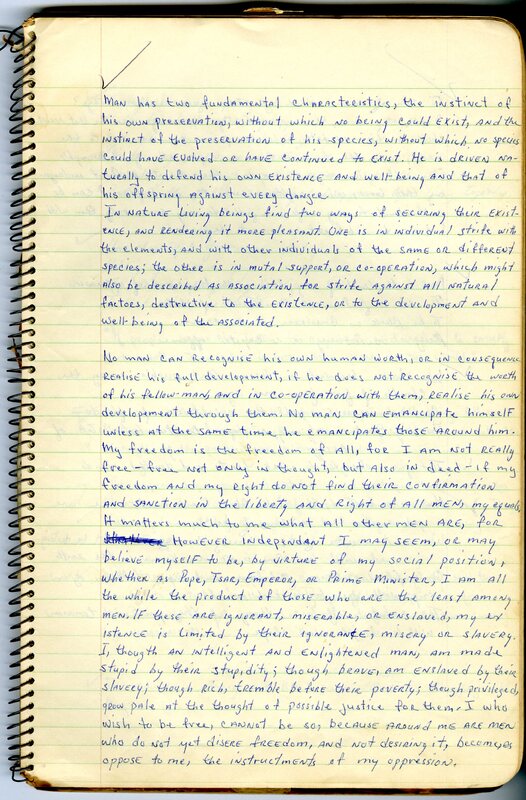 Man has two fundamental characteristics, the instinct of
his own preservation, without which no being could exist, and the
instinct of the preservation of his species, without which no species
could have evolved or have continued to exist. He is driven na-
turally to defend his own existence and well-being and that of
his offspring against every danger.
In nature living beings find two ways of securing their exist-
ence, and rendering it more pleasant. One is in individual strife with
the elements, and with other individuals of the same or different
species; the other is in mutal support, or co-operation, which might
also be described as association for strife against all natural
factors, destructive to the existence, or to the development and
well-being of the associated.
No man can recognise his own human worth, or in consequence
realise his full developement, if he does not recognise the worth
of his fellow-man, and in co-operation with them, realise his own
developement through them. No man can emancipate himself
unless at the same time he emancipates those around him.
My freedom is the freedom of all, for I am not really
free-free not only in thought, but also in deed-if my
freedom and my right do not find their confirmation
and sanction in the liberty and right of all men, my equals.
It matters much to me what all other men are, for
However independant I may seem, or may
believe myself to be, by virtue of my social position,
whether as Pope, Tsar, Emperor, or Prime Minister, I am all
the while the product of those who are the least among
men. If these are ignorant, miserable, or enslaved, my ex
istence is limited by their ignorance, misery or slavery.
I, thougth an intelligent and enlightened man, am made
stupid by their stupidity; though brave, am enslaved by their
slavery; though rich, tremble before their poverty; though privileged,
grow pale at the thought of possible justice for them. I who
wish to be free, cannot be so, because around me are men
who do not yet disere freedom, and not desiring it, become, as
oppose to me, the instructments of my oppression.